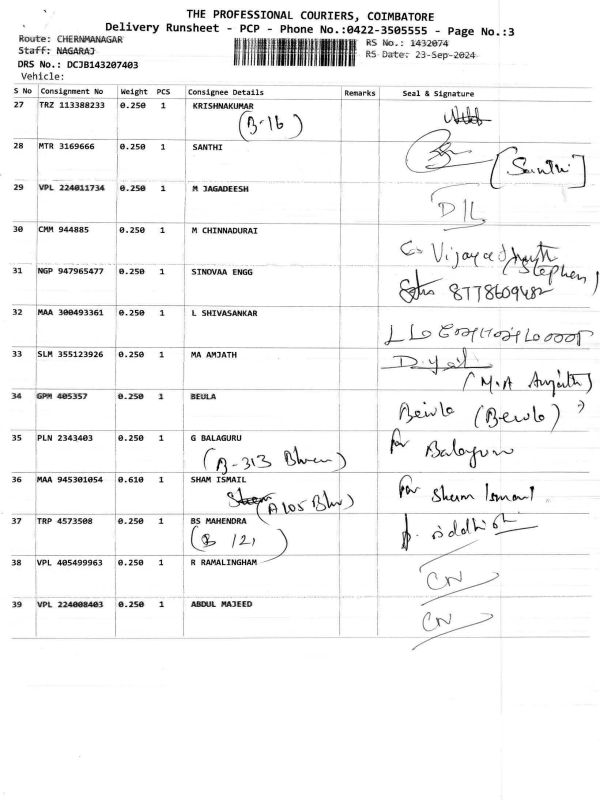 THE PROFESSIONAL COURIERS, COIMBATORE
Delivery Runsheet - PCP - Phone No.:0422-3505555 - Page No.:3
Route: CHERNMANAGAR
RS No.: 1432074
Staff: NAGARAJ
RS Date: 23-Sep-2024
DRS No.: DCJB143207403
Vehicle:
S No Consignment No Weight PCS Consignee Details Remarks Seal & Signature
27 TRZ 113388233 0.250 1 KRISHNAKUMAR
(B-16)
28 MTR 3169666 0.250 1 SANTHI
[Santhi]
29 VPL 224011734 0.250 1 M JAGADEESH
30 CMM 944885 0.250 1 M CHINNADURAI
31 NGP 947965477 0.250 1 SINOVAA ENGG
(Stephen)
8778609482
32 MAA 300493361 0.250 1 L SHIVASANKAR
33 SLM 355123926 0.250 1 MA AMJATH
(M.A Amjath)
34 GPM 405357 0.250 1 BEULA
Beula (Beula)
35 PLN 2343403 0.250 1 G BALAGURU
(B-313)
for Balaguru
36 MAA 945301054 0.610 1 SHAM ISMAIL
(A105)
for Sham Ismail
37 TRP 4573508 0.250 1 BS MAHENDRA
(B 121)
siddhish
38 VPL 405499963 0.250 1 R RAMALINGHAM
CN
39 VPL 224008403 0.250 1 ABDUL MAJEED
CN